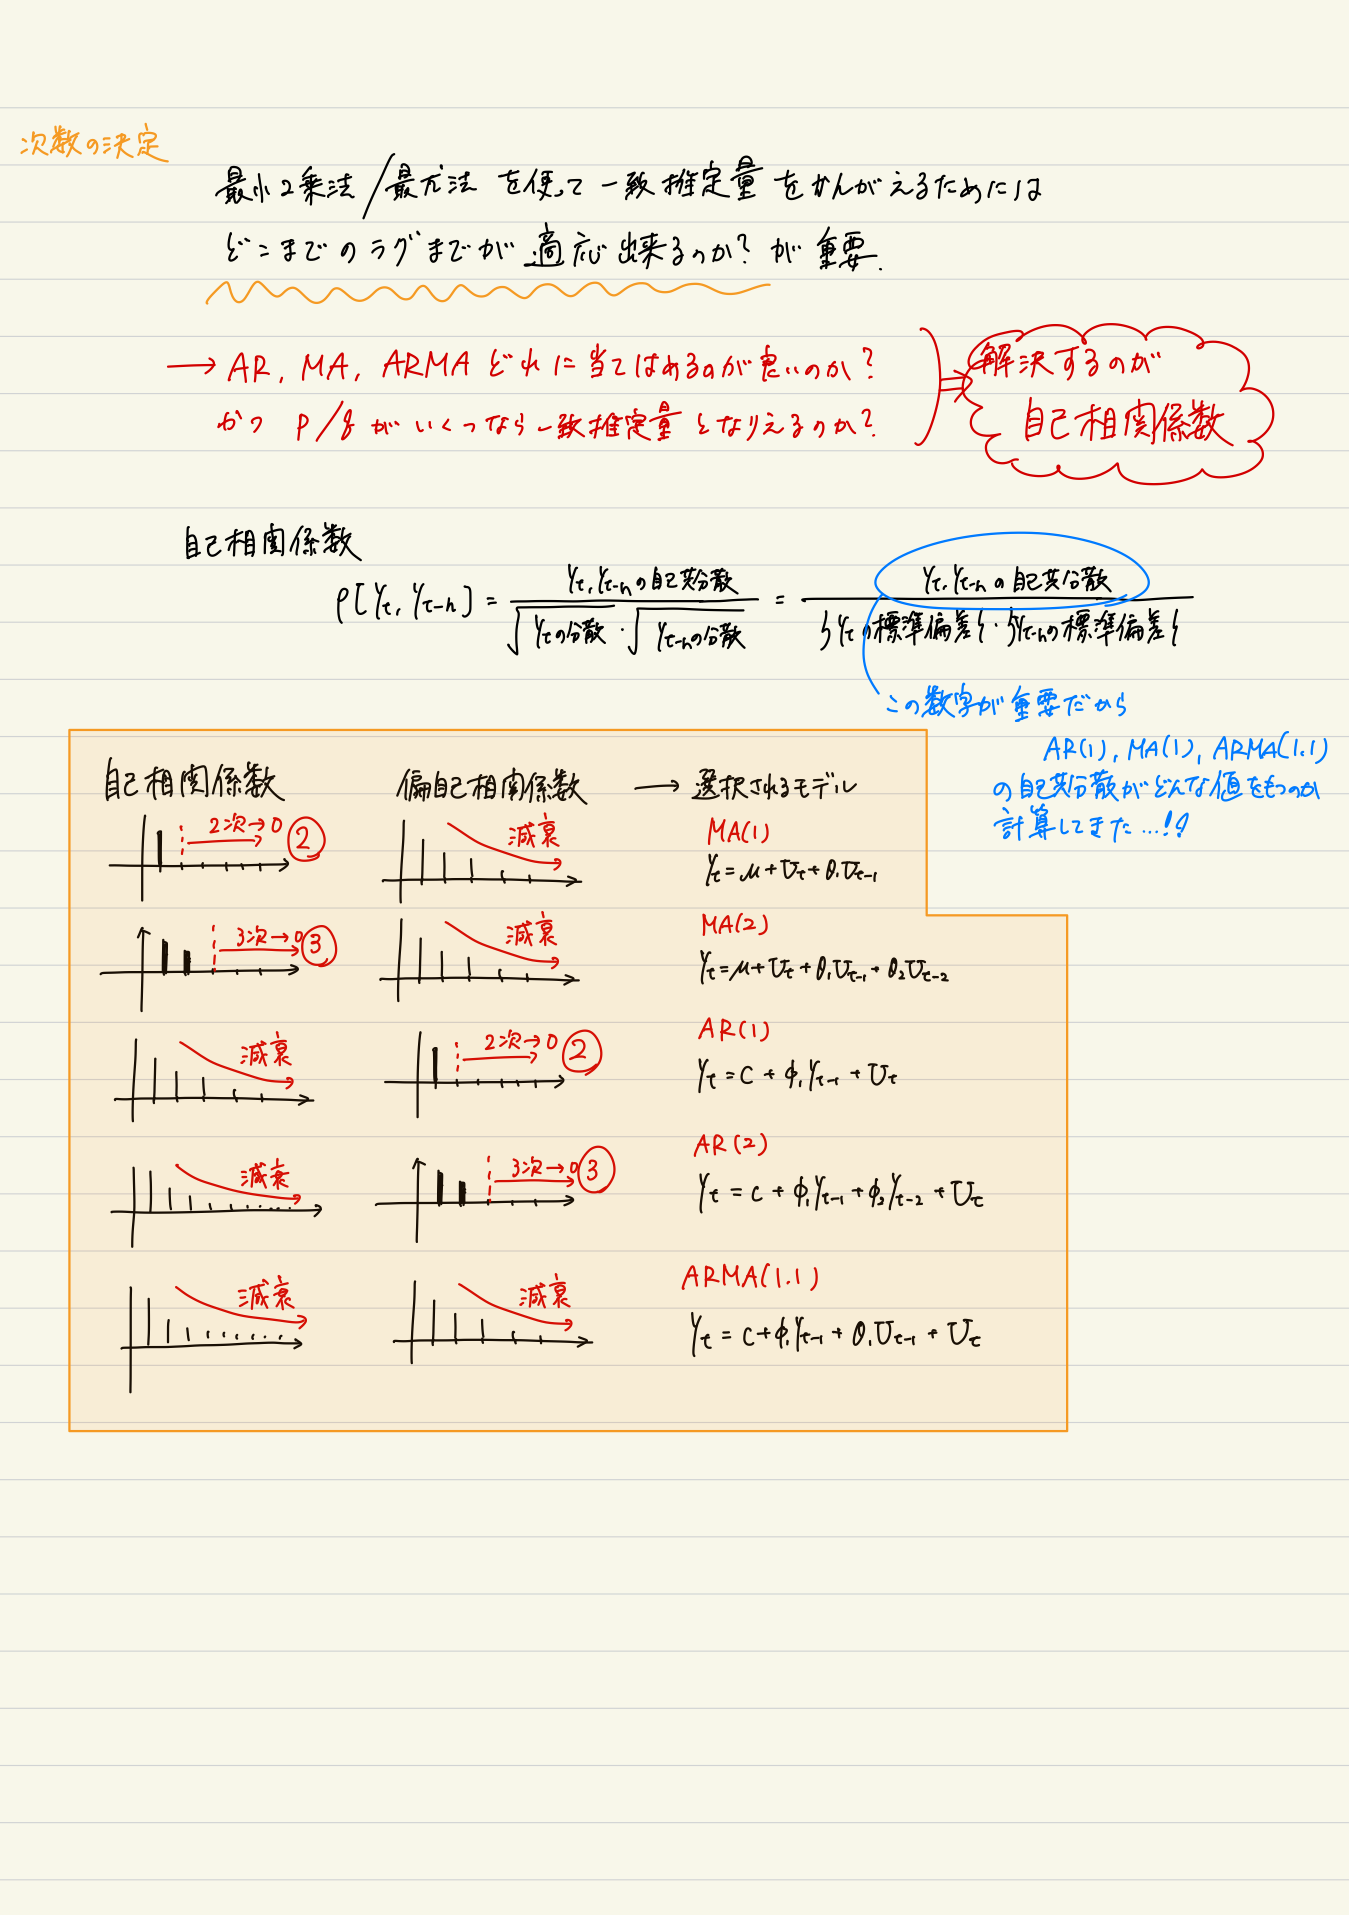 次数の決定
最小2乗法/最尤法 を使って 一致推定量 をかんがえるためには
どこまでのラグまでが 適応出来るのか? が 重要.
→ AR, MA, ARMA どれに当てはめるのが良いのか?
かつ p/q がいくつなら一致推定量 となりえるのか?
⇒ 解決するのが
自己相関係数
自己相関係数
ρ[Yt, Yt-h] = Yt, Yt-hの自己共分散 / √Ytの分散・√Yt-hの分散 = Yt, Yt-hの自己共分散 / {Ytの標準偏差}・{Yt-hの標準偏差}
この数字が重要だから
AR(1), MA(1), ARMA(1.1)
の自己共分散がどんな値をもつのか
計算してきた…!!
自己相関係数 偏自己相関係数 → 選択されるモデル
2次→0 ② 減衰 MA(1)
Yt = μ + Ut + θ1Ut-1
3次→0 ③ 減衰 MA(2)
Yt = μ + Ut + θ1Ut-1 + θ2Ut-2
減衰 2次→0 ② AR(1)
Yt = C + φ1Yt-1 + Ut
減衰 3次→0 ③ AR(2)
Yt = C + φ1Yt-1 + φ2Yt-2 + Ut
減衰 減衰 ARMA(1.1)
Yt = C + φ1Yt-1 + θ1Ut-1 + Ut